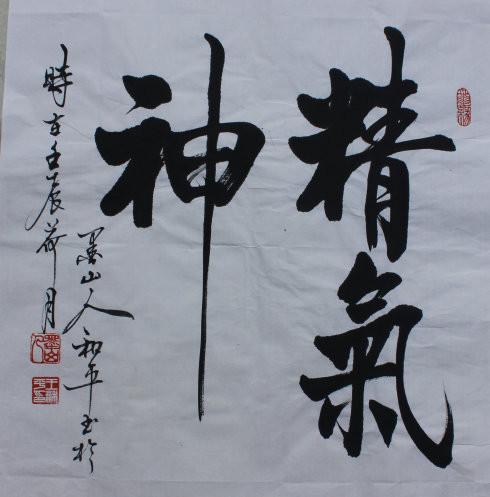 精氣
神
時在壬辰荷月
墨山人和平書於